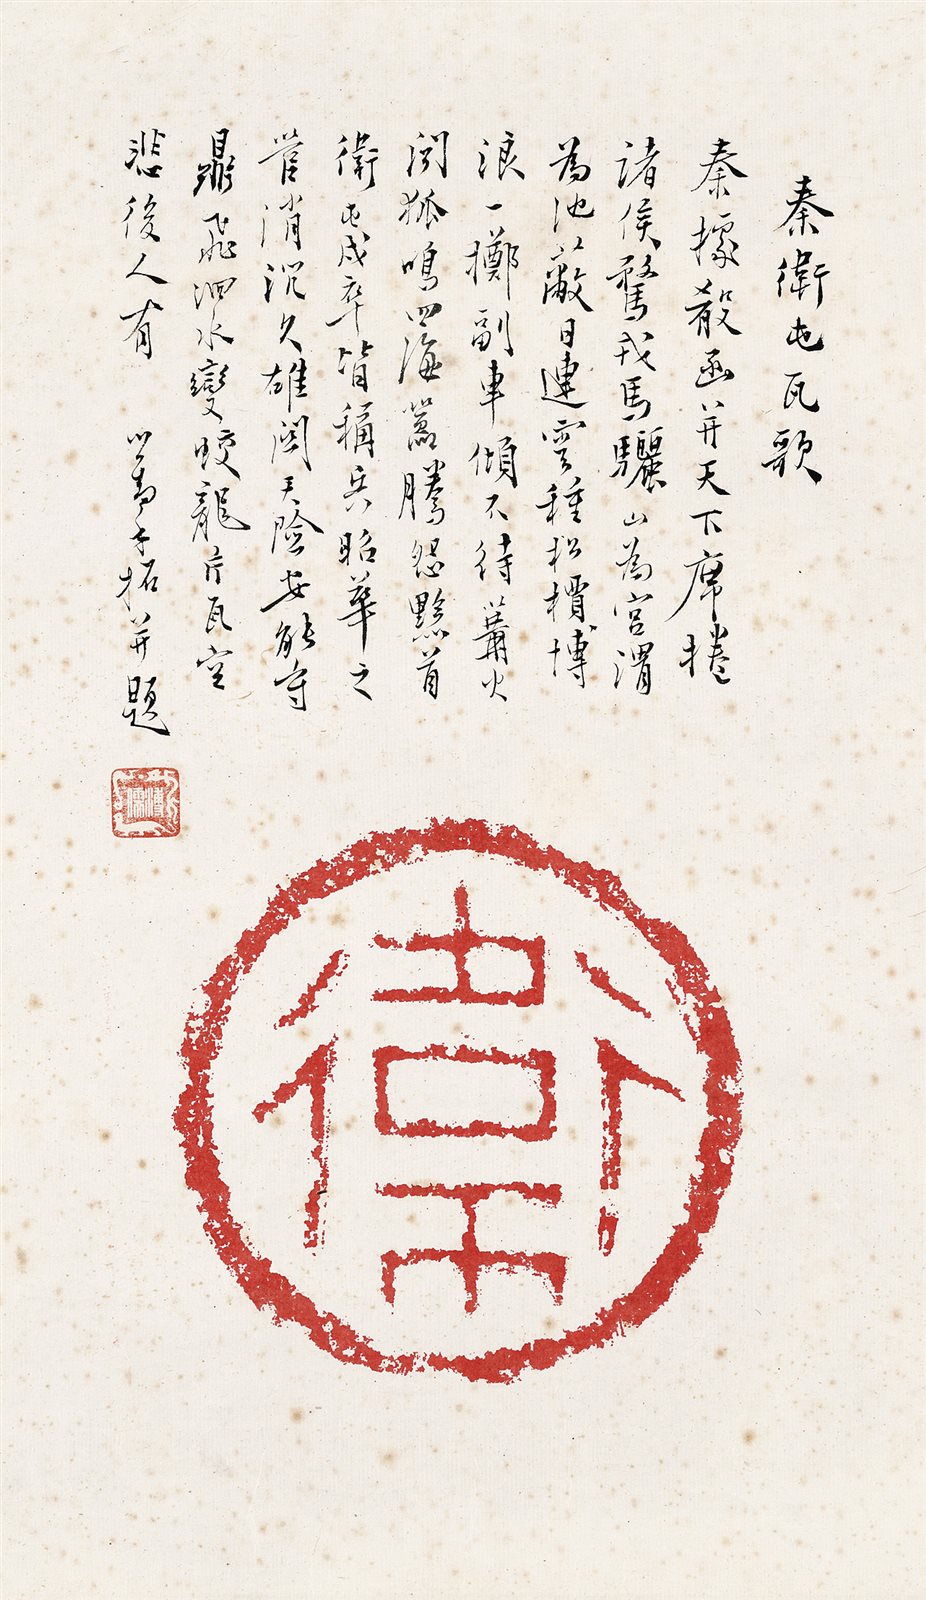 秦衛屯瓦歌
秦據殽函并天下席捲
諸侯騖戎馬驪山為宮渭
為池蔽日連雲種松檟博
浪一擲副車傾不待篝火
聞狐鳴四海嚣騰怨黔首
衛屯戍卒皆稱兵昭華之
管消沉久雄関天險安能守
鼎飛泗水變蛟龍片瓦空
悲後人有 心畬手拓并題
溥儒
衛